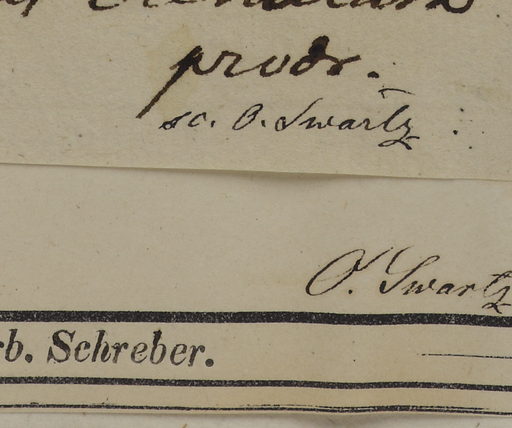 prodr.
sc. O. Swartz.
O. Swartz
rb. Schreber.